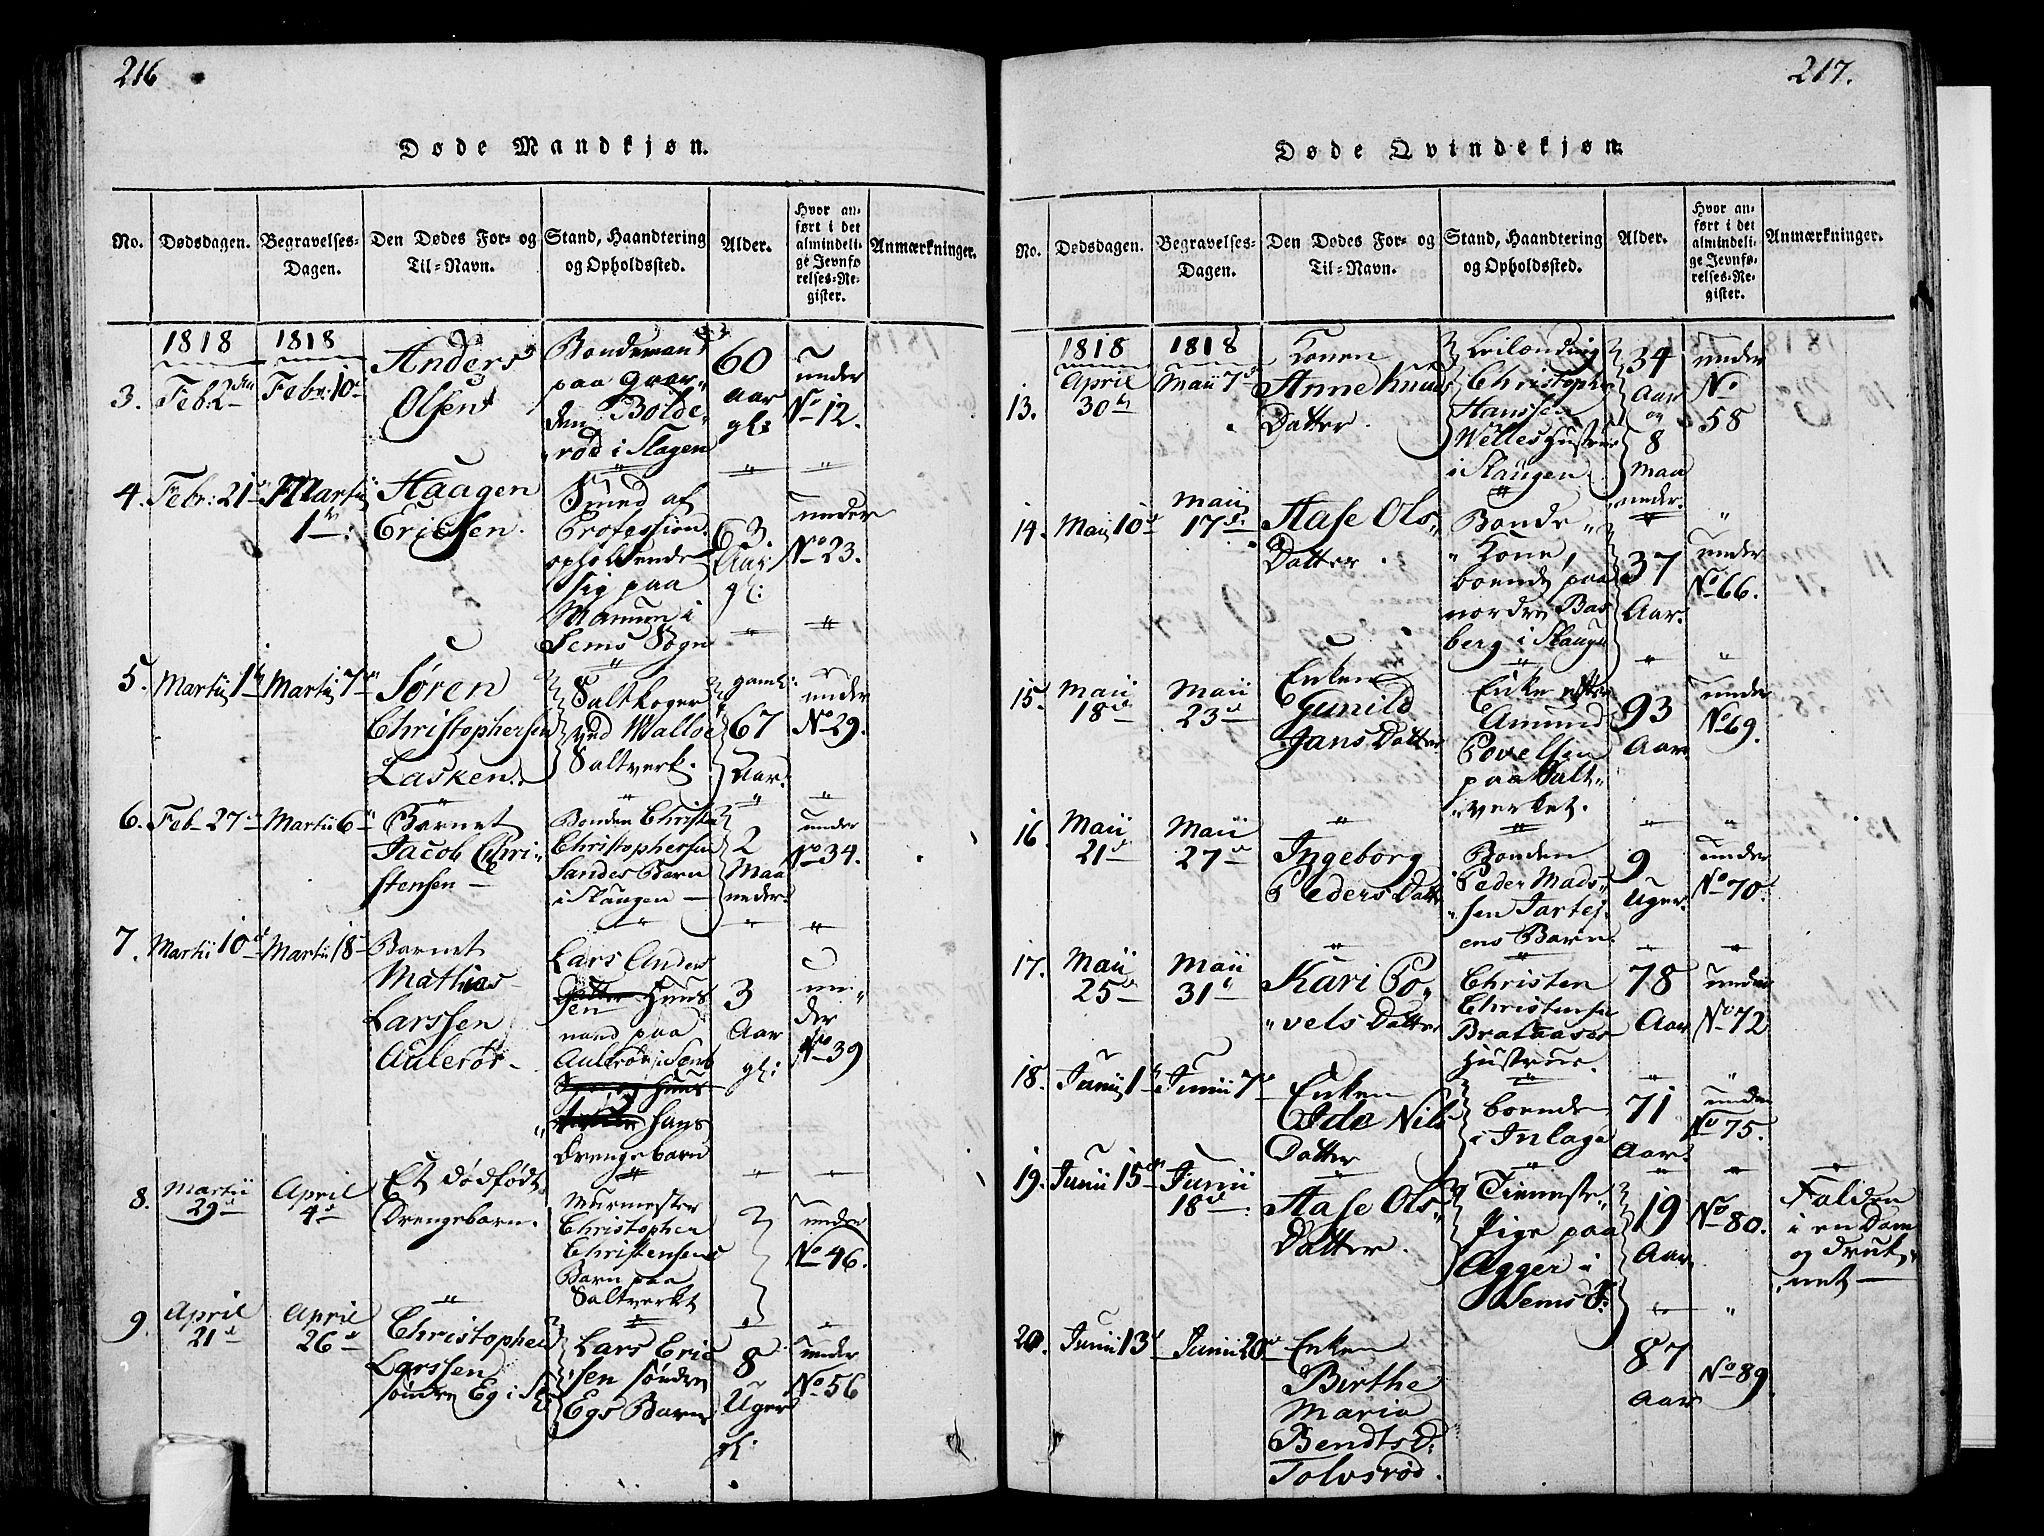 216
Døde Mandkjøn.
No.
Dødsdagen.
Begravelses-
Dagen.
Den Dødes For- og
Til-Navn.
Stand, Haandtering
og Opholdssted.
Alder.
Hvor an-
ført i det
almindeli-
ge Jevnfø
relses-Re-
gister.
Anmærkninger.
1818
1818
3.
Feb: 2den
Febr: 10de
Anders
Olsen
Bondemand
paa Gaar-
den Bolde-
rød i Slagen
60
Aar
gl:
under
No 12.
4.
Febr: 21
Martii
1
Haagen
Ericsen.
Smed af
Profession
opholdende
sig paa
i
Sems Sogn
63.
Aar
gl:
under
No 23.
5.
Martii 1
Martii 7
Søren
Christophersen
Lasken.
Saltkoger
ved Walløe
Saltverk.
gaml:
67
Aar.
under
No 29.
6.
Feb 27
Martii 6
Barnet
Jacob Chri-
stensen
Bonden Christen
Christophersen
Sandes Barn
i Slaugen
2
Maa
neder.
under
No 34.
7.
Martii 10
Martii 18
Barnet
Mathias
Larssen
Aulerør
Lars Anders
sen Huus
mand paa
Aulerør i Sems
hans
Drengebarn
3
Aar
gl:
un-
der
No 39
8.
Martii
29
April
4
Et dødfødt
Drengebarn.
Murmester
Christopher
Christensens
Barn paa
Saltverket
under
No 46.
9.
April
21
April
26
Christopher
Larssen
søndre Eg i
Lars Eric
sen søndre
Egs Barn
8
Uger
gl:
under
No 56
217.
Døde Qvindekjøn.
No.
Dødsdagen.
Begravelses-
Dagen.
Den Dødes For- og
Til-Navn.
Stand, Haandtering
og Opholdssted.
Alder.
Hvor an-
ført i det
almindeli-
ge Jevnfø-
relses-Re-
gister.
Anmærkninger.
1818
1818
13.
April
30
Maii 7
Konen
Anne Knuds
Datter.
Leilænding
Christopher
Hanssen
Welles Hustrue
i Slaugen
34
Aar
og
8
Maa
neder.
under
No
58
14.
Maii 10
Maii
17
Aase Ols-
Datter
Bonde
Kone,
boende paa
nordre Bas
berg i Slaugen
37
Aar.
under
No 66.
15.
Maii
18
Maii
23
Enken
Gunild
Jans Datter
Enke efter
Amund
Povelsen
paa Salt-
verket.
93
Aar
under
No 69.
16.
Maii
21
Maii
27
Ingeborg
Peders Datter
Bonden
Peder Mads-
sen
ens Barn.
9
Uger.
under
No 70.
17.
Maii
25
Maii
31
Kari Po-
vels Datter
Christen
Christensen
Hustrue.
78
Aar
under
No 72
18.
Junii 1
Junii 7
Enken
Ide Nils
Datter
boende
i Inlage
71
Aar.
under
No 75.
19.
Junii 15
Junii
18
Aase Ols-
Datter.
Tieneste-
Pige paa
Agger i
Sems S:
19
Aar
No 80.
Falden
i en Dam
og druk-
net
20.
Junii 13
Junii 20
Enken
Birthe
Maria
Bendtsd:
Tolvsrød.
87
Aar
No 89.